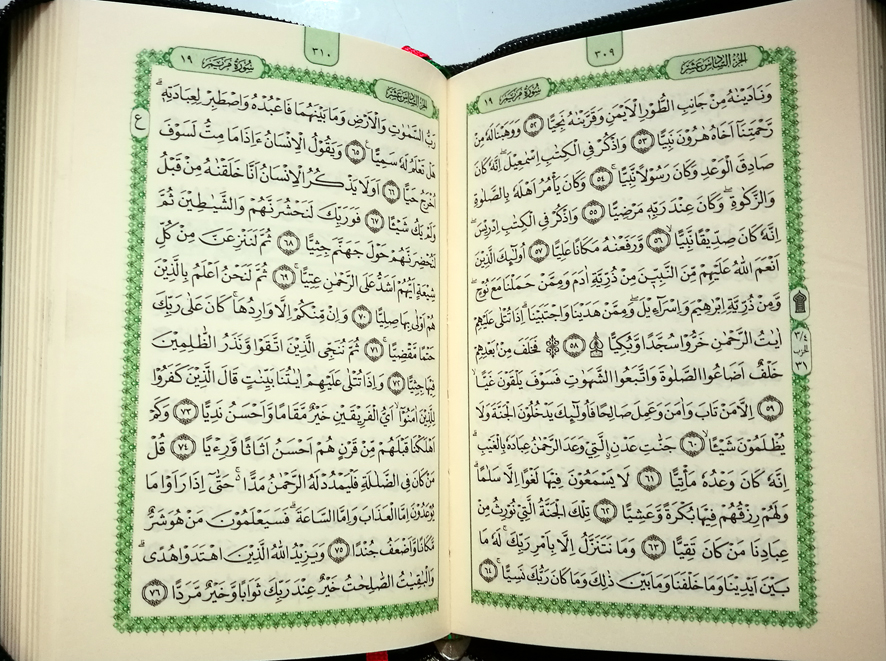 ٣٠٩
الجزء السادس عشر
سورة مريم ١٩
وَنَادَيْنٰهُ مِنْ جَانِبِ الطُّوْرِ الْاَيْمَنِ وَقَرَّبْنٰهُ نَجِيًّا ﴿٥٢﴾ وَوَهَبْنَا لَهٗ مِنْ
رَّحْمَتِنَآ اَخَاهُ هٰرُوْنَ نَبِيًّا ﴿٥٣﴾ وَاذْكُرْ فِى الْكِتٰبِ اِسْمٰعِيْلَ ۖ اِنَّهٗ كَانَ
صَادِقَ الْوَعْدِ وَكَانَ رَسُوْلًا نَّبِيًّا ۚ ﴿٥٤﴾ وَكَانَ يَأْمُرُ اَهْلَهٗ بِالصَّلٰوةِ
وَالزَّكٰوةِ ۖ وَكَانَ عِنْدَ رَبِّهٖ مَرْضِيًّا ﴿٥٥﴾ وَاذْكُرْ فِى الْكِتٰبِ اِدْرِيْسَ ۖ
اِنَّهٗ كَانَ صِدِّيْقًا نَّبِيًّا ۙ ﴿٥٦﴾ وَرَفَعْنٰهُ مَكَانًا عَلِيًّا ﴿٥٧﴾ اُولٰٓئِكَ الَّذِيْنَ
اَنْعَمَ اللّٰهُ عَلَيْهِمْ مِّنَ النَّبِيّٖنَ مِنْ ذُرِّيَّةِ اٰدَمَ وَمِمَّنْ حَمَلْنَا مَعَ نُوْحٍ ۖ
وَّمِنْ ذُرِّيَّةِ اِبْرٰهِيْمَ وَاِسْرَآءِيْلَ ۖ وَمِمَّنْ هَدَيْنَا وَاجْتَبَيْنَا ۗ اِذَا تُتْلٰى عَلَيْهِمْ
اٰيٰتُ الرَّحْمٰنِ خَرُّوْا سُجَّدًا وَّبُكِيًّا ۩ ﴿٥٨﴾ فَخَلَفَ مِنْ بَعْدِهِمْ
خَلْفٌ اَضَاعُوا الصَّلٰوةَ وَاتَّبَعُوا الشَّهَوٰتِ فَسَوْفَ يَلْقَوْنَ غَيًّا ۙ
﴿٥٩﴾ اِلَّا مَنْ تَابَ وَاٰمَنَ وَعَمِلَ صَالِحًا فَاُولٰٓئِكَ يَدْخُلُوْنَ الْجَنَّةَ وَلَا
يُظْلَمُوْنَ شَيْـًٔا ۙ ﴿٦٠﴾ جَنّٰتِ عَدْنِ ۨالَّتِيْ وَعَدَ الرَّحْمٰنُ عِبَادَهٗ بِالْغَيْبِ ۗ
اِنَّهٗ كَانَ وَعْدُهٗ مَأْتِيًّا ﴿٦١﴾ لَا يَسْمَعُوْنَ فِيْهَا لَغْوًا اِلَّا سَلٰمًا ۗ
وَلَهُمْ رِزْقُهُمْ فِيْهَا بُكْرَةً وَّعَشِيًّا ﴿٦٢﴾ تِلْكَ الْجَنَّةُ الَّتِيْ نُوْرِثُ مِنْ
عِبَادِنَا مَنْ كَانَ تَقِيًّا ﴿٦٣﴾ وَمَا نَتَنَزَّلُ اِلَّا بِاَمْرِ رَبِّكَ ۚ لَهٗ مَا
بَيْنَ اَيْدِيْنَا وَمَا خَلْفَنَا وَمَا بَيْنَ ذٰلِكَ وَمَا كَانَ رَبُّكَ نَسِيًّا ۚ ﴿٦٤﴾
٣/٤
الحزب
٣١
٣١٠
الجزء السادس عشر
سورة مريم ١٩
رَبُّ السَّمٰوٰتِ وَالْاَرْضِ وَمَا بَيْنَهُمَا فَاعْبُدْهُ وَاصْطَبِرْ لِعِبَادَتِهٖ ۗ
هَلْ تَعْلَمُ لَهٗ سَمِيًّا ۚ ﴿٦٥﴾ وَيَقُوْلُ الْاِنْسَانُ ءَاِذَا مَا مِتُّ لَسَوْفَ
اُخْرَجُ حَيًّا ﴿٦٦﴾ اَوَلَا يَذْكُرُ الْاِنْسَانُ اَنَّا خَلَقْنٰهُ مِنْ قَبْلُ
وَلَمْ يَكُ شَيْـًٔا ﴿٦٧﴾ فَوَرَبِّكَ لَنَحْشُرَنَّهُمْ وَالشَّيٰطِيْنَ ثُمَّ
لَنُحْضِرَنَّهُمْ حَوْلَ جَهَنَّمَ جِثِيًّا ﴿٦٨﴾ ثُمَّ لَنَنْزِعَنَّ مِنْ كُلِّ
شِيْعَةٍ اَيُّهُمْ اَشَدُّ عَلَى الرَّحْمٰنِ عِتِيًّا ۚ ﴿٦٩﴾ ثُمَّ لَنَحْنُ اَعْلَمُ بِالَّذِيْنَ
هُمْ اَوْلٰى بِهَا صِلِيًّا ﴿٧٠﴾ وَاِنْ مِّنْكُمْ اِلَّا وَارِدُهَا ۚ كَانَ عَلٰى رَبِّكَ
حَتْمًا مَّقْضِيًّا ۚ ﴿٧١﴾ ثُمَّ نُنَجِّى الَّذِيْنَ اتَّقَوْا وَّنَذَرُ الظّٰلِمِيْنَ
فِيْهَا جِثِيًّا ﴿٧٢﴾ وَاِذَا تُتْلٰى عَلَيْهِمْ اٰيٰتُنَا بَيِّنٰتٍ قَالَ الَّذِيْنَ كَفَرُوْا
لِلَّذِيْنَ اٰمَنُوْٓا ۙ اَيُّ الْفَرِيْقَيْنِ خَيْرٌ مَّقَامًا وَّاَحْسَنُ نَدِيًّا ﴿٧٣﴾ وَكَمْ
اَهْلَكْنَا قَبْلَهُمْ مِّنْ قَرْنٍ هُمْ اَحْسَنُ اَثَاثًا وَّرِءْيًا ﴿٧٤﴾ قُلْ
مَنْ كَانَ فِى الضَّلٰلَةِ فَلْيَمْدُدْ لَهُ الرَّحْمٰنُ مَدًّا ۚ حَتّٰىٓ اِذَا رَاَوْا مَا
يُوْعَدُوْنَ اِمَّا الْعَذَابَ وَاِمَّا السَّاعَةَ ۗ فَسَيَعْلَمُوْنَ مَنْ هُوَ شَرٌّ
مَّكَانًا وَّاَضْعَفُ جُنْدًا ﴿٧٥﴾ وَيَزِيْدُ اللّٰهُ الَّذِيْنَ اهْتَدَوْا هُدًى ۗ
وَالْبٰقِيٰتُ الصّٰلِحٰتُ خَيْرٌ عِنْدَ رَبِّكَ ثَوَابًا وَّخَيْرٌ مَّرَدًّا ﴿٧٦﴾
ع